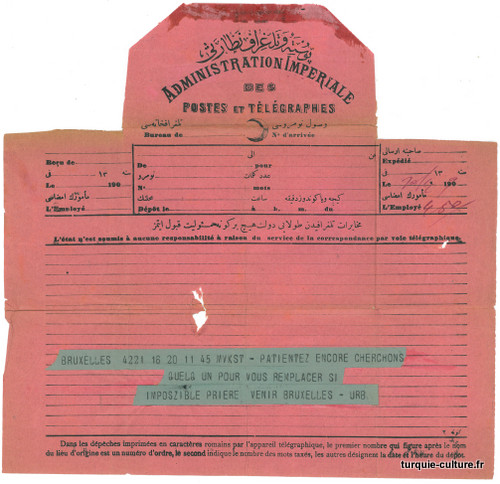 پوسته و تلغراف نظارتی
ADMINISTRATION IMPERIALE
DES
POSTES ET TÉLÉGRAPHES
تلغرافخانه‌سی وصول نومروسی
Bureau de N° d'arrivée
الی عن
Reçu de De pour Expédié
فی ١٣ نومرو عدد کلمات فی ١٣
Le 190 N° mots Le 190
مأمورك امضاسی ساعت مأمورك امضاسی
L'Employé Dépôt le h. m. du L'Employé
مخابرات تلغرافیدن طولایی دولت هیچ بر کونه مسئولیت قبول ایتمز
L'état n'est soumis à aucune responsabilité à raison du service de la correspondance par voie télégraphique.
BRUXELLES 4221 16 20 11 45 MVKST - PATIENTEZ ENCORE CHERCHONS
QUELQ UN POUR VOUS REMPLACER SI
IMPOSZIBLE PRIERE VENIR BRUXELLES - URB
Dans les dépêches imprimées en caractères romains par l'appareil télégraphique, le premier nombre qui figure après le nom
du lieu d'origine est un numéro d'ordre, le second indique le nombre des mots taxés, les autres désignent la date et l'heure du dépôt.
turquie-culture.fr